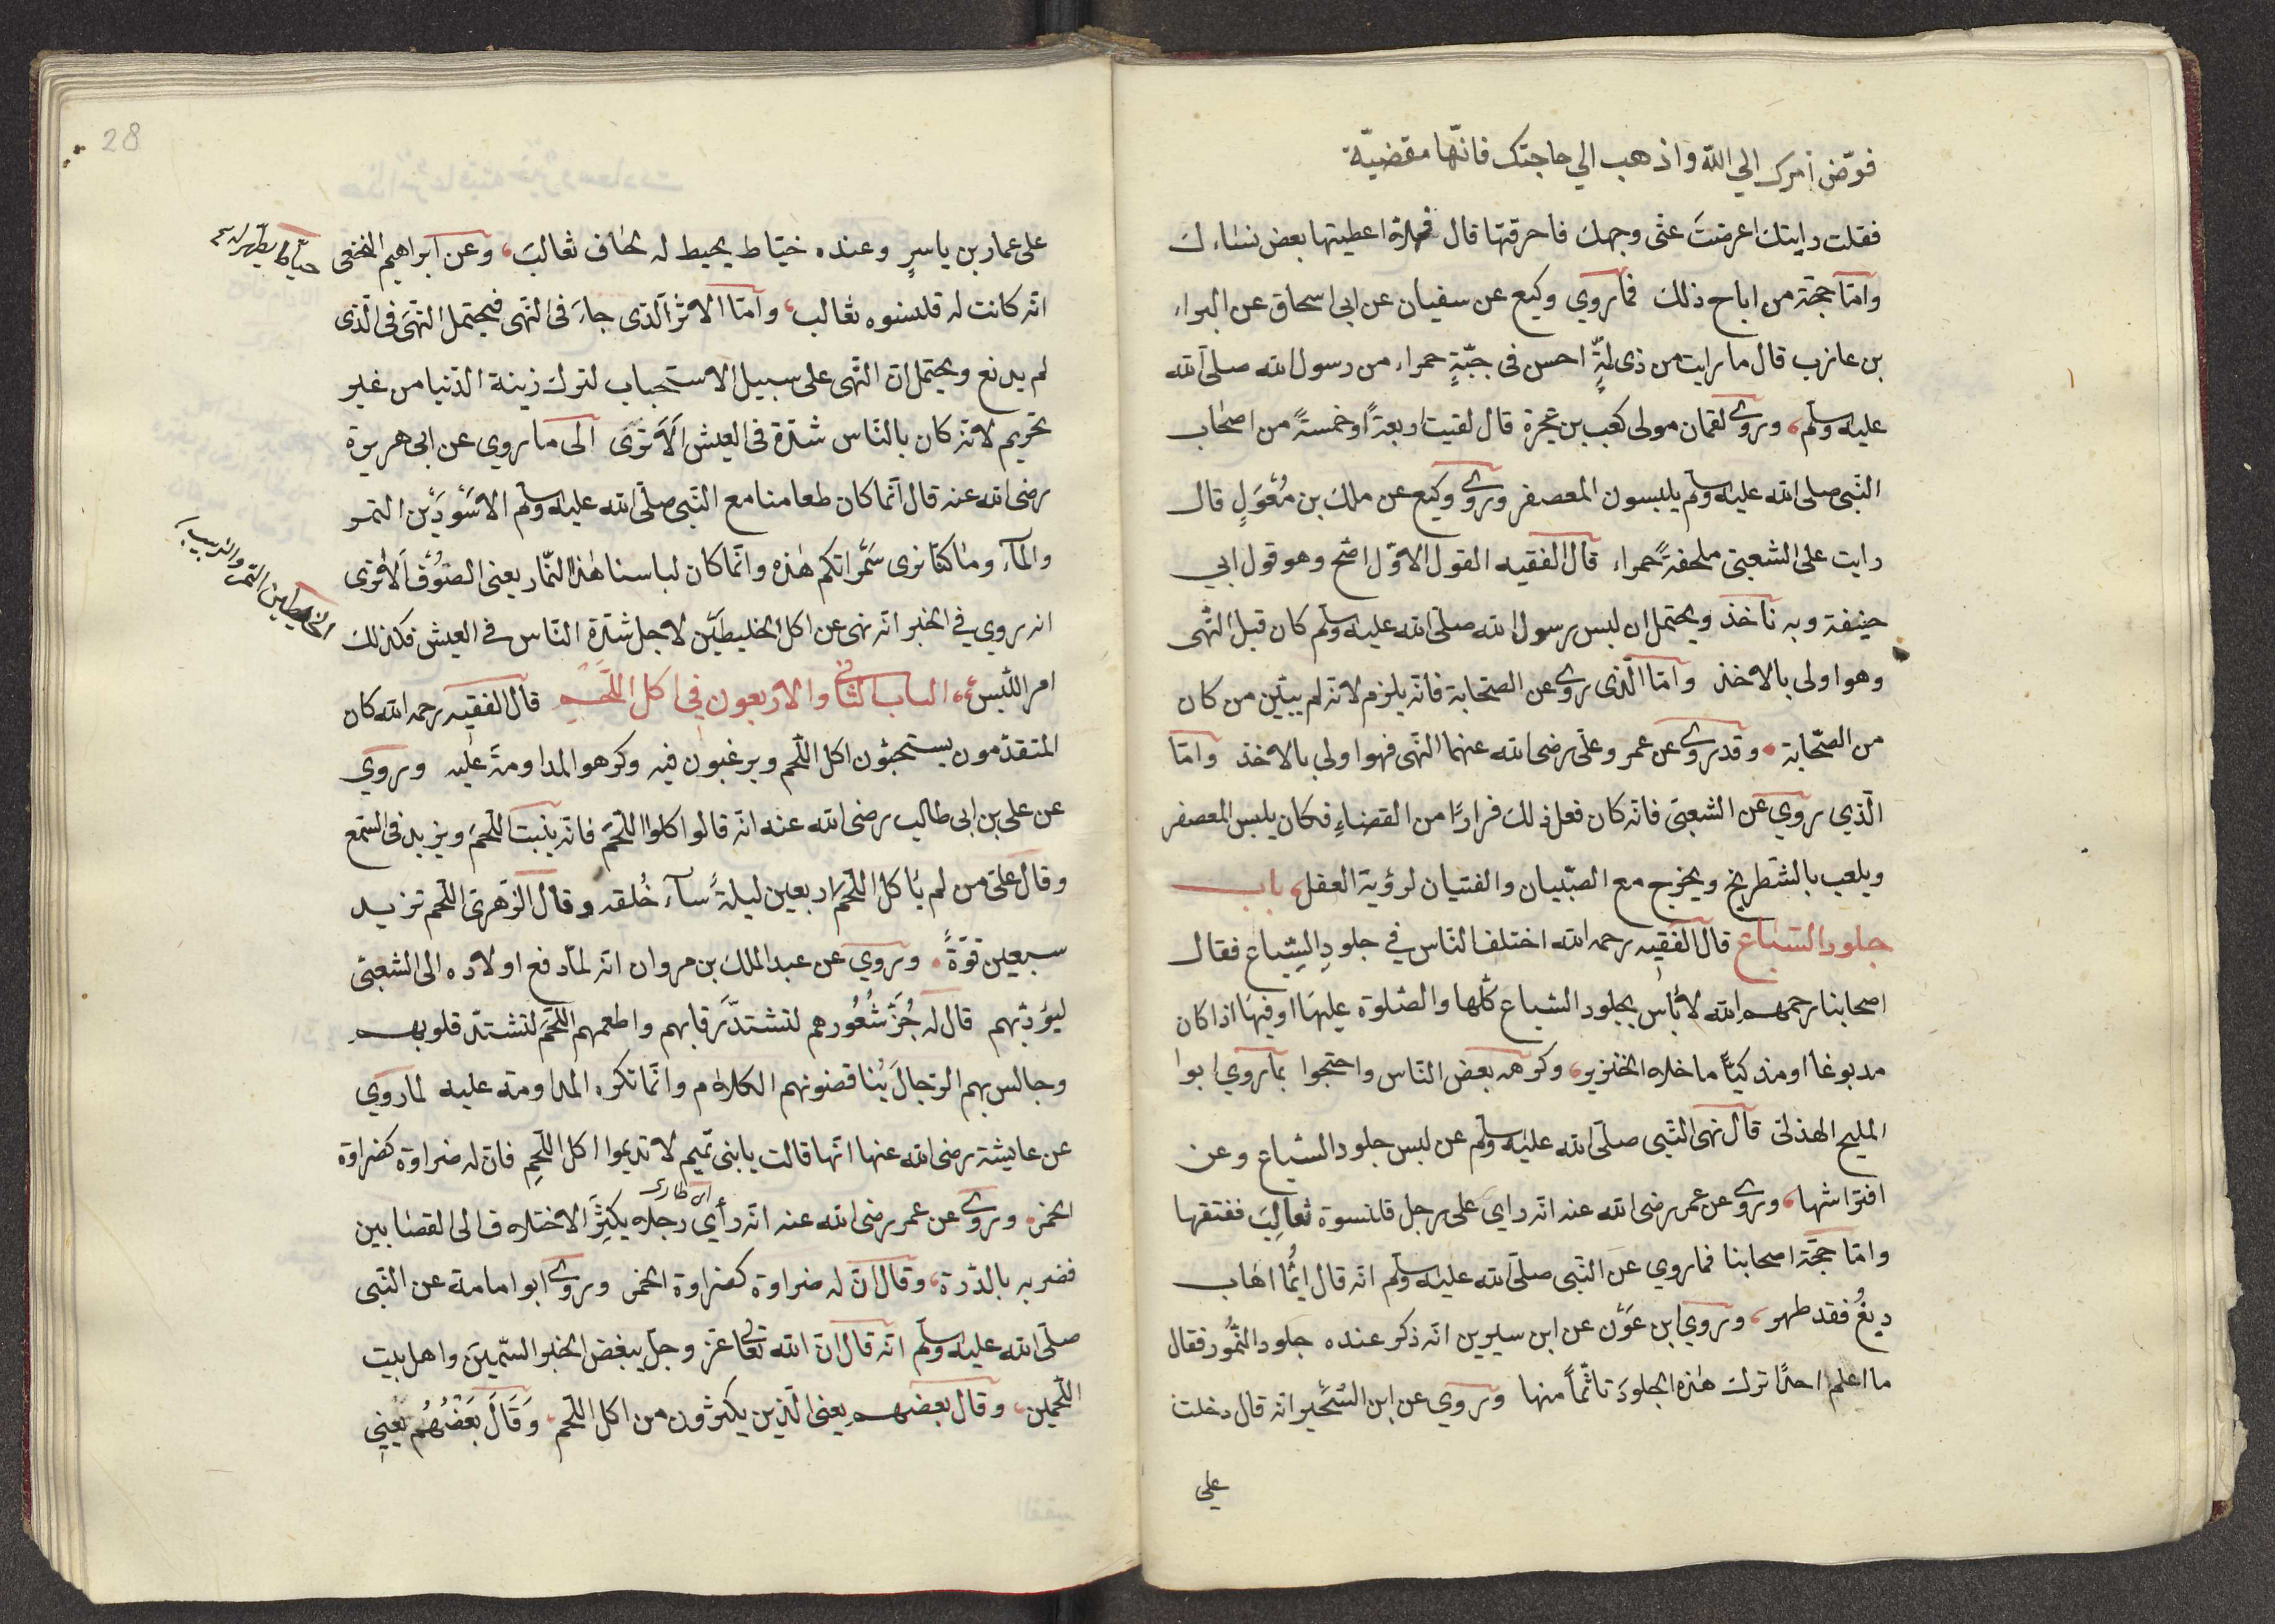 فوّض أمرك الي الله واذهب الي حاجتك فانّها مقضيّة
فقلت رايتك اعرضتَ عنّى وجهك فاحرقتها قال فهلاّ اعطيتها بعض نساءك
وامّا حجّة من اباح ذلك فما روي وكيع عن سفيان عن ابى اسحاق عن البراء
بن عازب قال ما رايت من ذى لمّةٍ احسن فى جبّةٍ حمراء من رسول الله صلى الله
عليه وسلم، وروى لقمان مولى كعب بن عجرة قال لقيت اربعةً او خمسةً من اصحاب
النّبى صلى الله عليه وسلم يلبسون المعصفر وروى وكيع عن ملك بن مُغوَلٍ قال
رايت على الشعبىّ ملحفةً حمراء قال الفقيه القول الاوّل اصّح وهو قول ابي
حنيفة وبه نأخذ ويحتمل ان لبس رسول الله صلّى الله عليه وسلم كان قبل النّهى
وهو اولى بالاخذ وامّا الّذى روى عن الصّحابة فانّه يلزم لانّه لم يبيّن من كان
من الصّحابة، وقد روى عن عمر وعلى رضى الله عنهما النّهى فهو اولى بالاخذ وامّا
الّذي روي عن الشعبىّ فانّه كان فعل ذلك فرارًا من القضاءِ فكان يلبس المعصفر
ويلعب بالشّطرنج ويخرج مع الصّبيان والفتيان لرؤية الفيل، باب
جلود السّباع قال الفقيه رحمه الله اختلف النّاس في جلودِ السِّباع فقال
اصحابنا رحمهم الله لا بأس بجلود السّباع كلّها والصّلوة عليها او فيها اذا كان
مدبوغا او مذكيّاً ما خلا الخنزير، وكرهه بعض النّاس واحتجوا بما روي ابوا
المليح الهذلىّ قال نهى النّبى صلّى الله عليه وسلم عن لبس جلود السّباع وعن
افتراشها، وروى عن عمر رضى الله عنه انّه راي على رجل قلنسوة ثعالِبَ ففتقها
وامّا حجّة اصحابنا فما روي عن النّبى صلّى الله عليه وسلم انّه قال ايُّما اهاب
دبغُ فقد طهر، وروي ابن عَوْن عن ابن سيرين انّه ذكر عنده جلود النّمُور فقال
ما اعلم احدًا ترك هذه الجلودَ تأثّماً منها وروي عن ابن الشّخّير انّه قال دخلت
على
28
على عمار بن ياسرٍ وعنده خيّاط يخيط له لحاف ثعالبَ، وعن ابراهيم النخعى
انّه كانت له قلنسوه ثعالب، وامّا الاثر الّذى جاءَ فى النّهى فيحتمل النّهىَ فى الّذى
لم يدبغ ويحتمل انّ النّهى على سبيل الاستحباب لترك زينة الدّنيا من غير
تحريم لانّه كان بالنّاس شدّة فى العيش الَاَ تَرَى الى ما روي عن ابى هريرة
رضى الله عنه قال انّما كان طعامنا مع النّبى صلّى الله عليه وسلم الاسْوَدَيْن التمر
والمآء وما كنّا نرى سَمْراتكم هذه وانّما كان لباسنا هذا النّمار يعنى الصّوُف اَلاَ ترى
انه روي في الخبر انّه نهى عن اكل الخليطَيْن لاجل شدّة النّاس في العيش فكذلك
الخليطين التمر والزبيب
امر اللّبس، الباب الثّانى والاربعون فى اكل اللّحَمِ قال الفقيه رحمه الله كان
المتقدّمون يستحبّون اكل اللّحم ويرغبون فيه وكرهوا المداومةَ عليه وروي
عن على بن ابى طالب رضى الله عنه انّه قال كلوا اللّحم فانّه ينبت اللّحمَ ويزيد فى السّمع
وقال علىّ من لم يأكل اللّحم اربعين ليلةً سآء خُلقه وقال الزّهرىّ اللّحم تزيد
سبعين قوّةً، وروي عن عبد الملك بن مروان انّه لمّا دفع اولاده الى الشعبىّ
ليؤدّبهم قال له جُزّ شُعُورهم لتشتدّ رقابهم واطعمهم اللّحمَ لتشتدّ قلوبهم
وجالس بهم الرّجالَ يُناقضونهم الكلام وانّما تكره المداومة عليه لما روي
عن عايشة رضى الله عنها انّها قالت يابنى تّميم لا تديموا اكل اللّحمِ فانّ له ضراوة كضراوة
الخمر، وروى عن عمر رضى الله عنه انّه رأى رجلا يكثِرُ الاختلاف الى القصّابين
فضربه بالدّرة، وقال انّ له ضراوة كضراوة الخمر وروى ابوا مامة عن النّبى
صلّى الله عليه وسلم انّه قال انّ الله تعالى عزّ وجلّ يبغض الخبر السّمينَ واهل بيت
اللّحمين، وقال بعضهم يعنى الّذين يكثرون من اكل اللّحم، وَقَالَ بَعَضُهُم يَعِنى